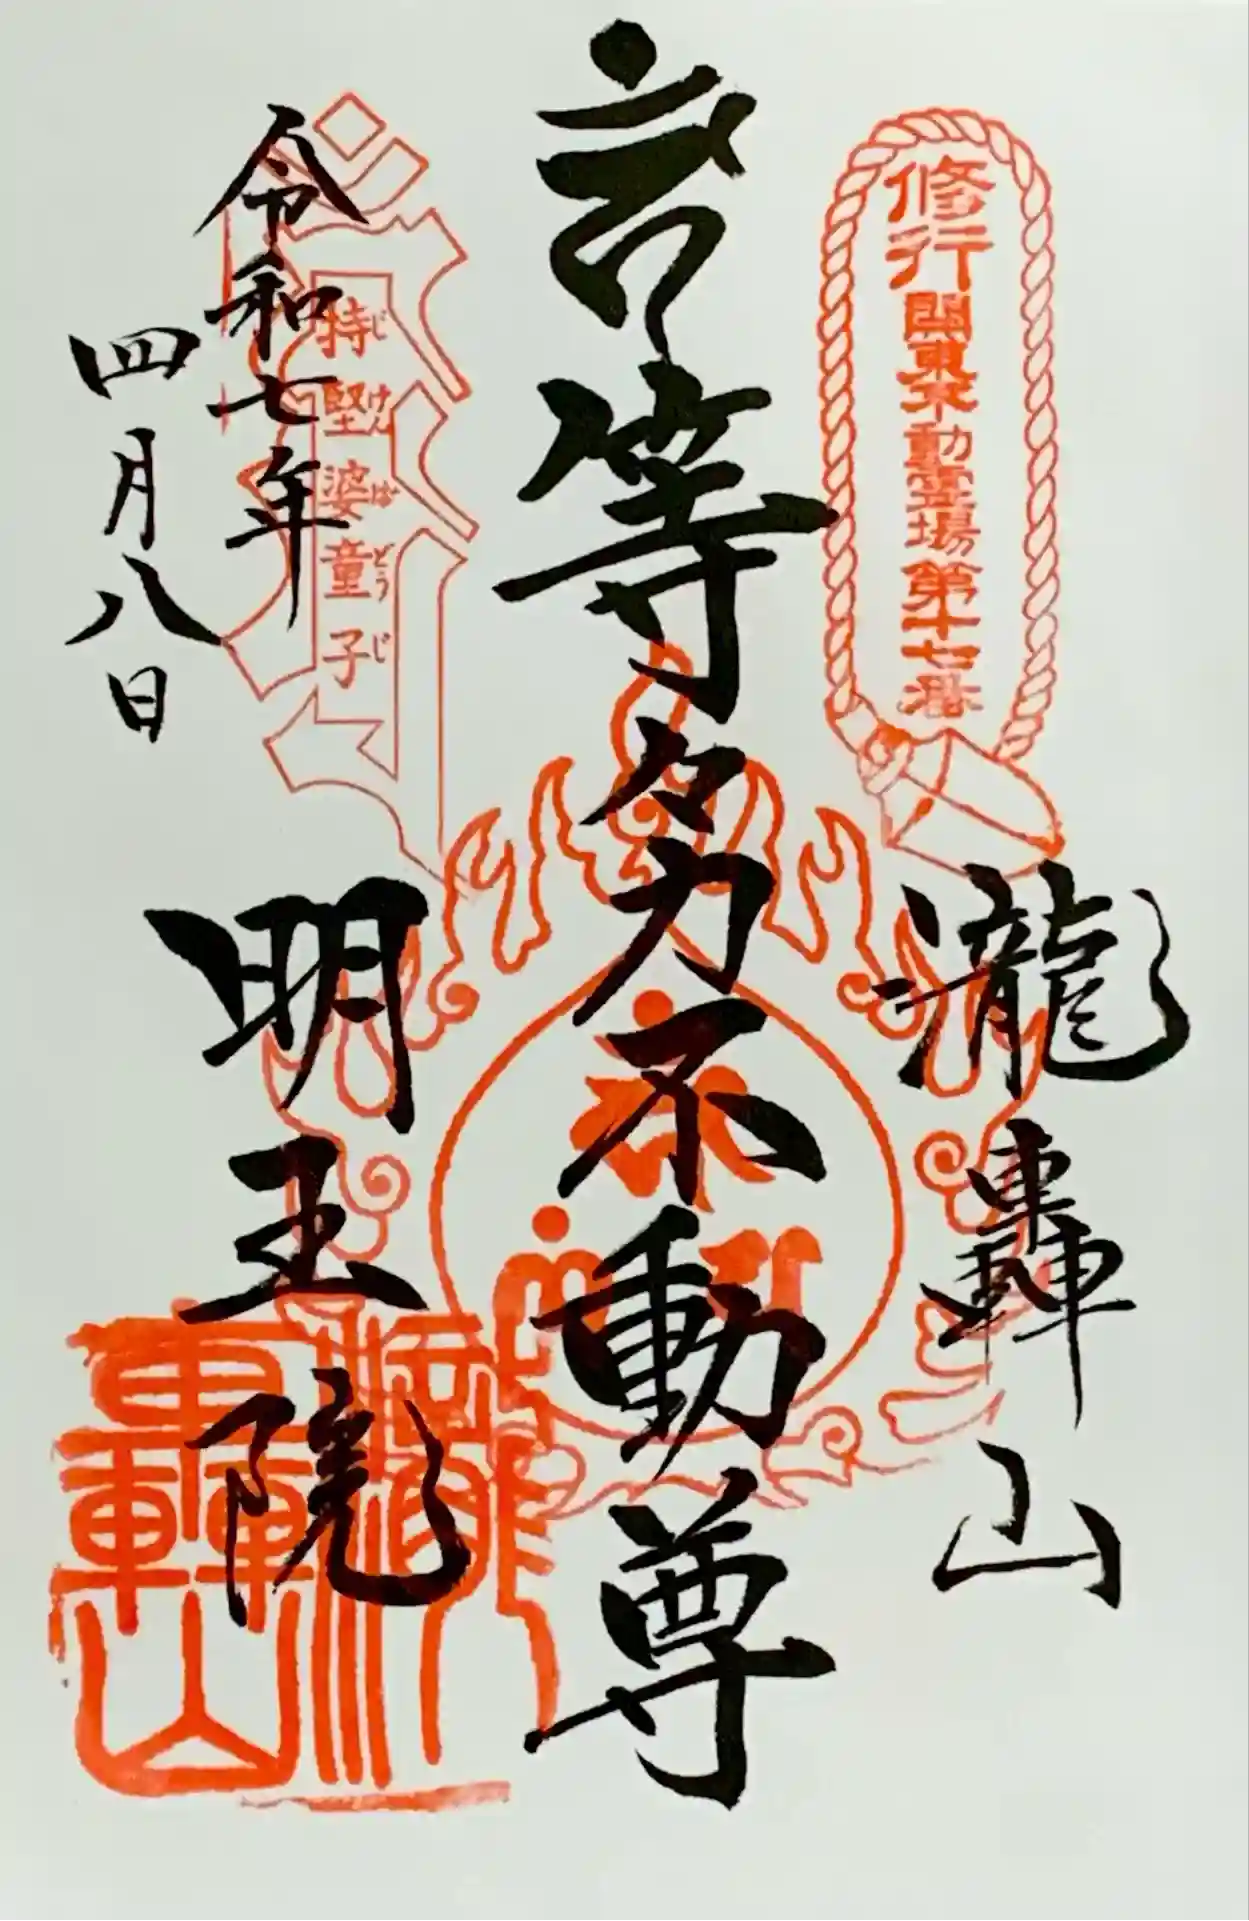 修行関東不動霊場第十七番
瀧轟山
等々力不動尊
持堅婆童子
じけんばどうじ
令和七年
四月八日
明王院
瀧轟山